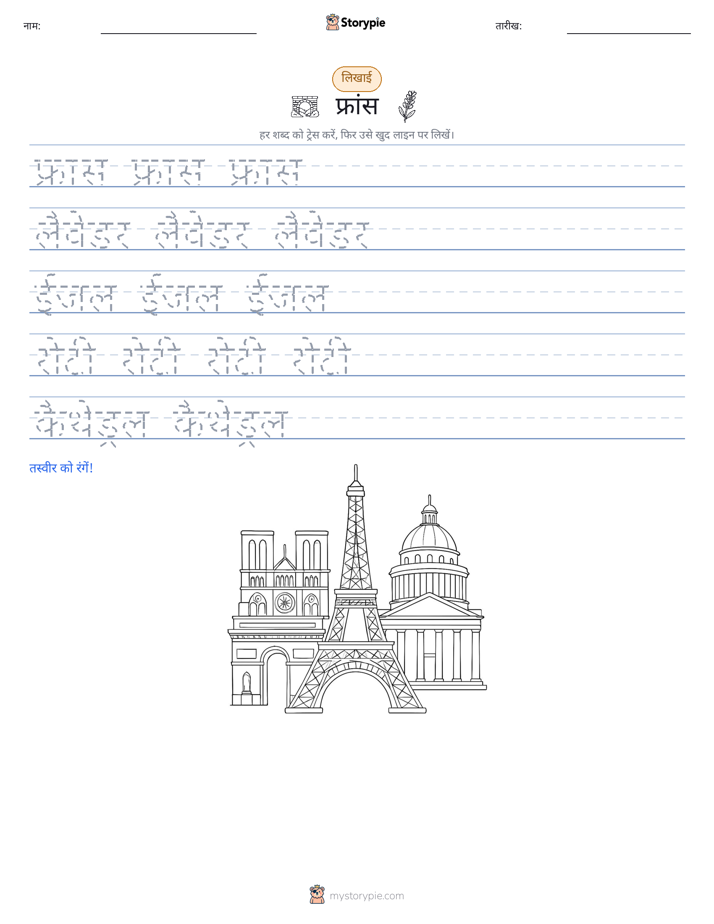 नाम:
Storypie
तारीख:
लिखाई
फ्रांस
हर शब्द को ट्रेस करें, फिर उसे खुद लाइन पर लिखें।
फ्रांस फ्रांस फ्रांस
लैवेंडर लैवेंडर लैवेंडर
ईजल ईजल ईजल
रोटी रोटी रोटी रोटी
कैथेड्रल कैथेड्रल
तस्वीर को रंगें!
mystorypie.com